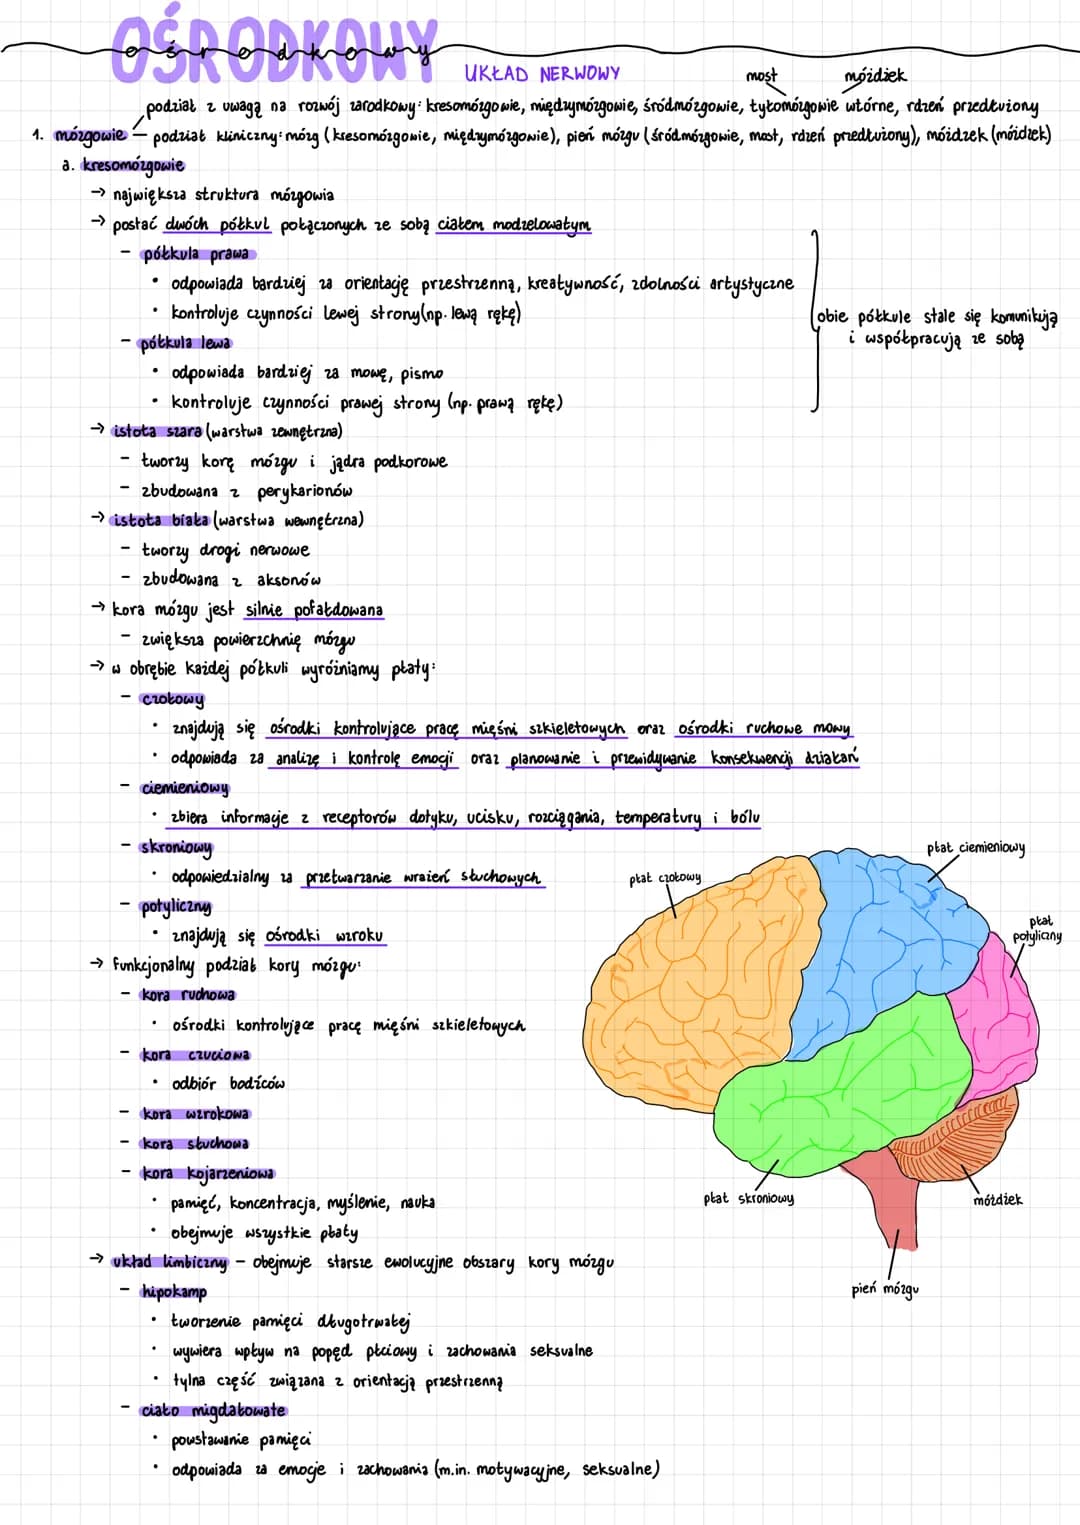 OŚRODKOWY
ośrodkowy
UKŁAD NERWOWY
most móżdżek
podział z uwagą na rozwój zarodkowy: kresomózgowie, międzymózgowie, śródmózgowie, tyłomózgowie wtórne, rdzeń przedłużony
1. mózgowie – podział kliniczny: mózg (kresomózgowie, międzymózgowie), pień mózgu (śródmózgowie, most, rdzeń przedłużony), móżdżek (móżdżek)
a. kresomózgowie
→ największa struktura mózgowia
→ postać dwóch półkul połączonych ze sobą ciałem modzelowatym
- półkula prawa
• odpowiada bardziej za orientację przestrzenną, kreatywność, zdolności artystyczne
• kontroluje czynności lewej strony(np. lewą rękę)
obie półkule stale się komunikują
i współpracują ze sobą
- półkula lewa
• odpowiada bardziej za mowę, pismo
• kontroluje czynności prawej strony (np. prawą rękę)
→ istota szara (warstwa zewnętrzna)
- tworzy korę mózgu i jądra podkorowe
- zbudowana z perykarionów
→ istota biała (warstwa wewnętrzna)
- tworzy drogi nerwowe
- zbudowana z aksonów
→ kora mózgu jest silnie pofałdowana
- zwiększa powierzchnię mózgu
→ w obrębie każdej półkuli wyróżniamy płaty:
- czołowy
• znajdują się ośrodki kontrolujące pracę mięśni szkieletowych oraz ośrodki ruchowe mowy
• odpowiada za analizę i kontrolę emocji oraz planowanie i przewidywanie konsekwencji działań
- ciemieniowy
• zbiera informacje z receptorów dotyku, ucisku, rozciągania, temperatury i bólu
- skroniowy
• odpowiedzialny za przetwarzanie wrażeń słuchowych
- potyliczny
• znajdują się ośrodki wzroku
→ funkcjonalny podział kory mózgu:
- kora ruchowa
• ośrodki kontrolujące pracę mięśni szkieletowych
- kora czuciowa
• odbiór bodźców
- kora wzrokowa
- kora słuchowa
- kora kojarzeniowa
• pamięć, koncentracja, myślenie, nauka
• obejmuje wszystkie płaty
→ układ limbiczny – obejmuje starsze ewolucyjne obszary kory mózgu
- hipokamp
• tworzenie pamięci długotrwałej
• wywiera wpływ na popęd płciowy i zachowania seksualne
• tylna część związana z orientacją przestrzenną
- ciało migdałowate
• powstawanie pamięci
• odpowiada za emocje i zachowania (m.in. motywacyjne, seksualne)
płat czołowy
płat ciemieniowy
płat
potyliczny
płat skroniowy
móżdżek
pień mózgu